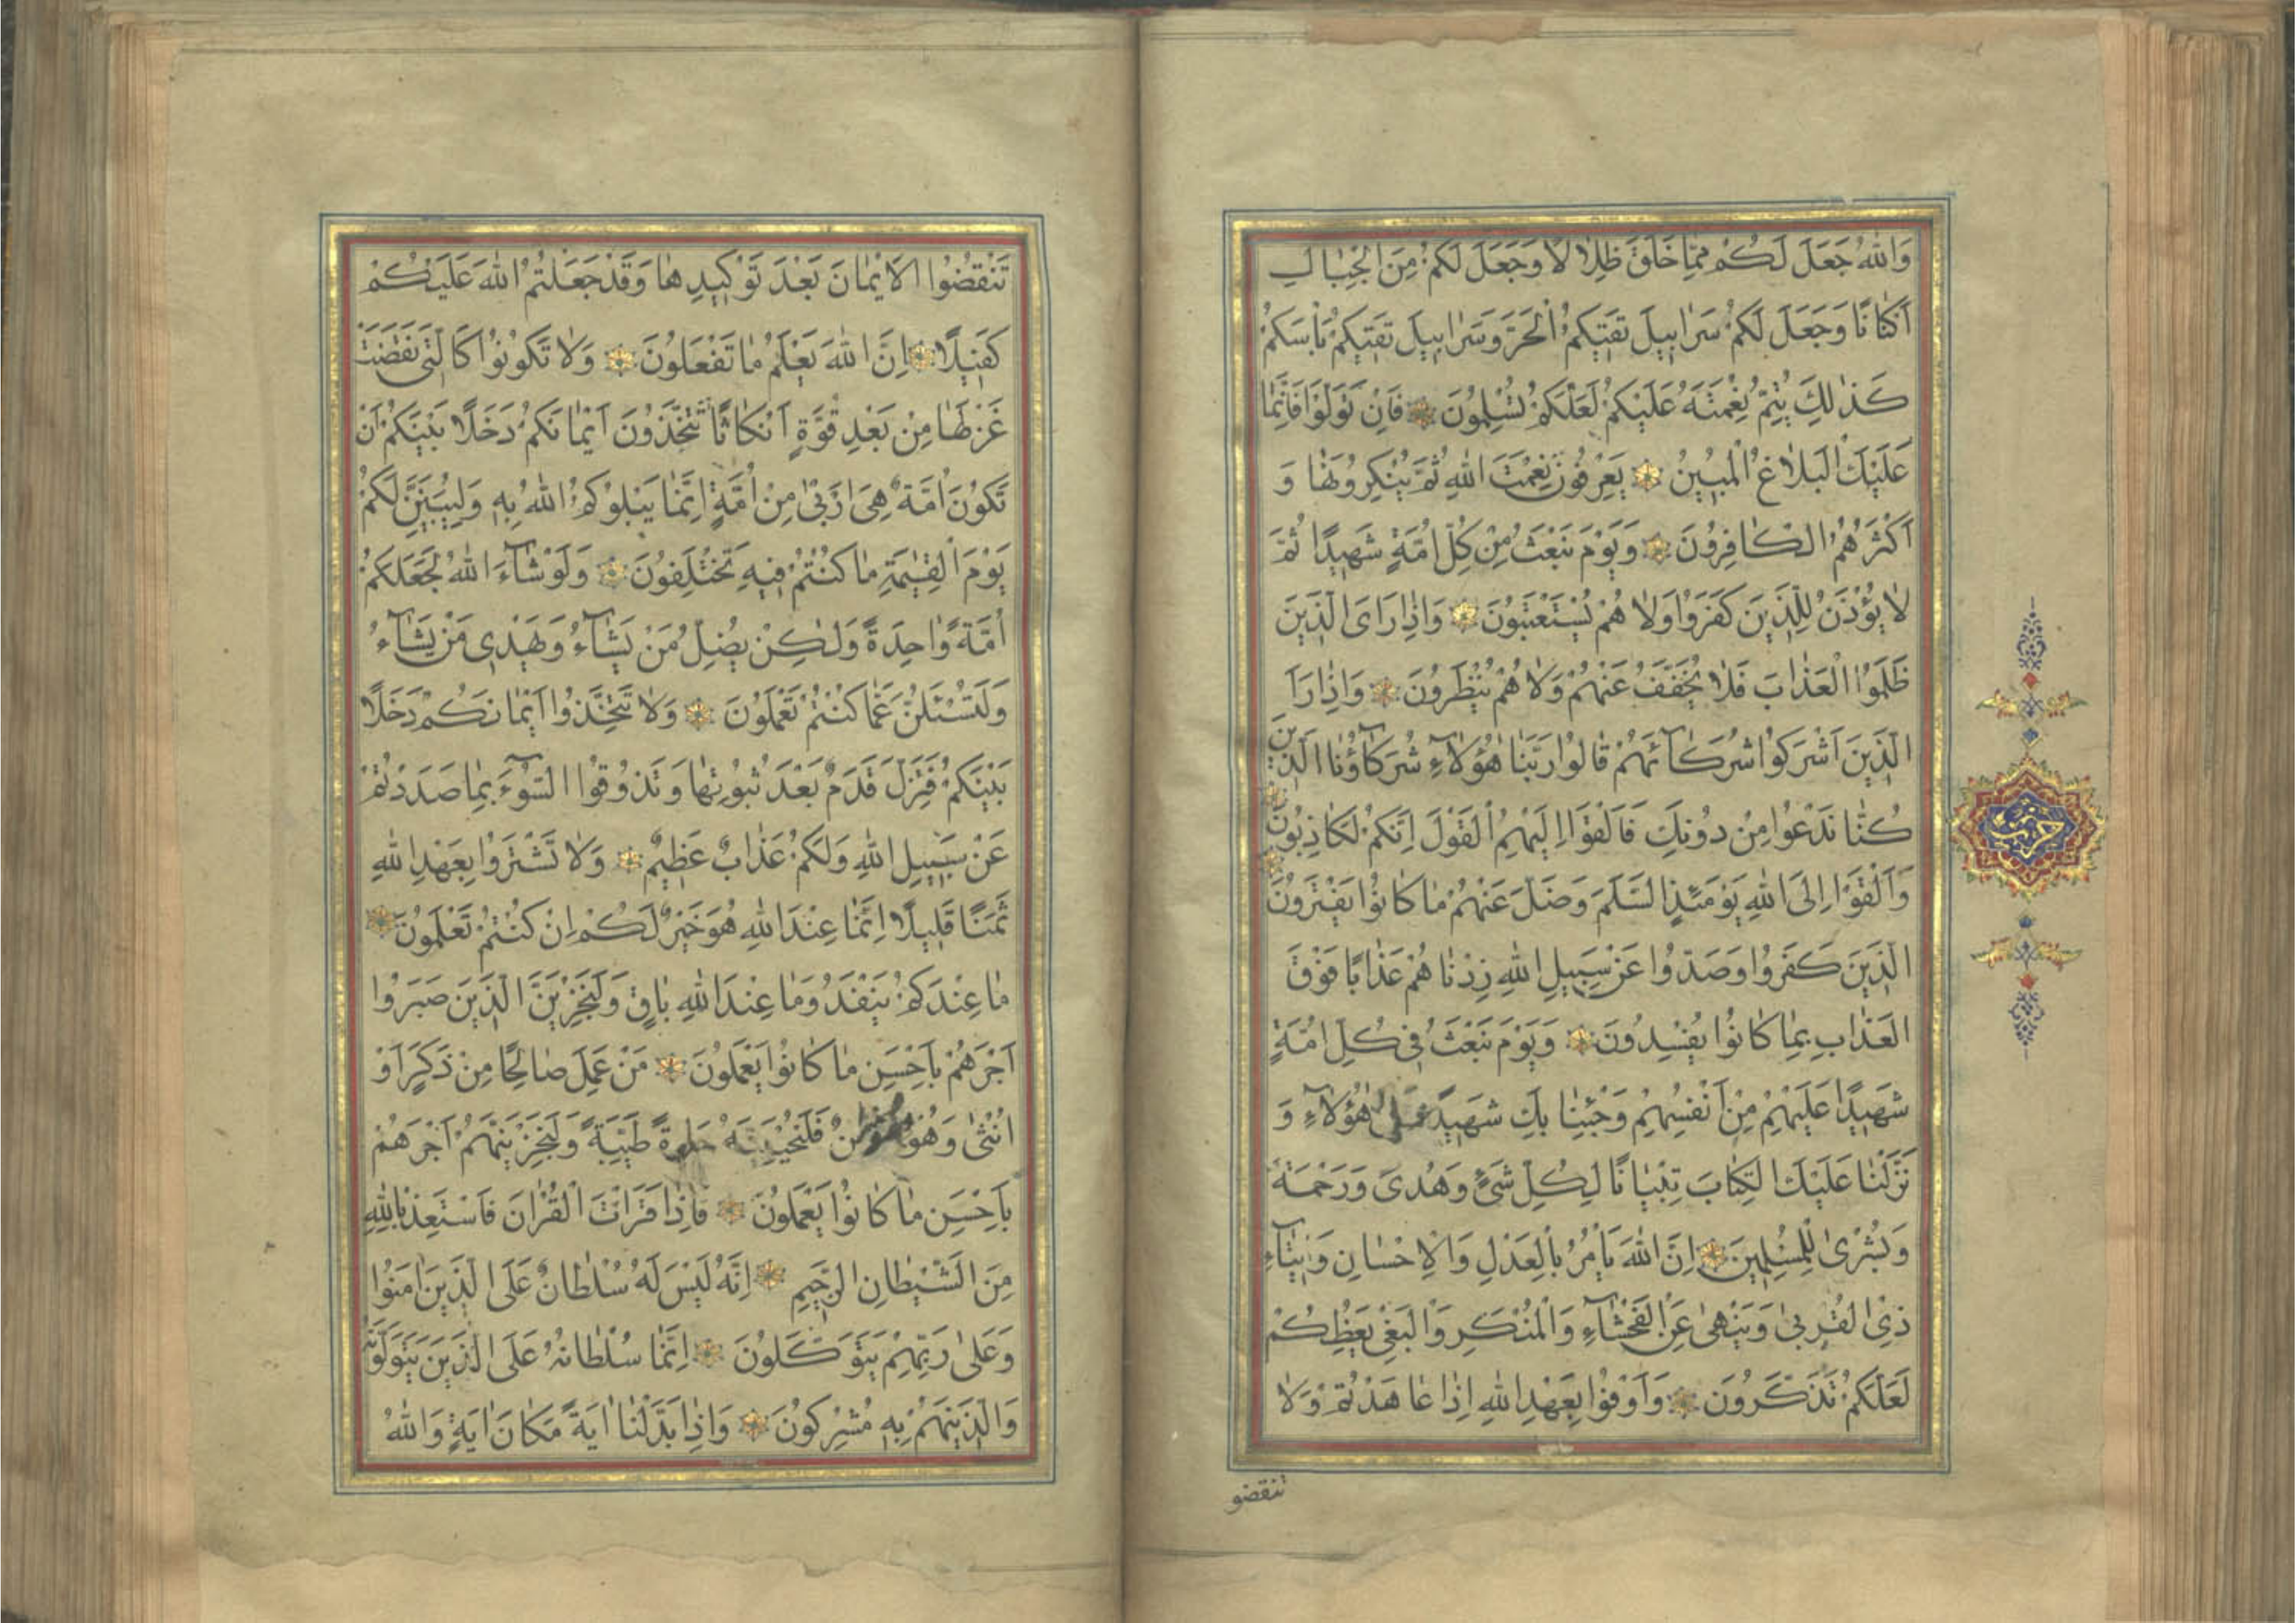 وَاللّٰهُ جَعَلَ لَكُمْ مِمَّا خَلَقَ ظِلَالًا وَجَعَلَ لَكُمْ مِنَ الْجِبَالِ
اَكْنَانًا وَجَعَلَ لَكُمْ سَرَابِيلَ تَقِيكُمُ الْحَرَّ وَسَرَابِيلَ تَقِيكُمْ بَاْسَكُمْ
كَذٰلِكَ يُتِمُّ نِعْمَتَهُ عَلَيْكُمْ لَعَلَّكُمْ تُسْلِمُونَ فَاِنْ تَوَلَّوْا فَاِنَّمَا
عَلَيْكَ الْبَلَاغُ الْمُبِينُ يَعْرِفُونَ نِعْمَتَ اللّٰهِ ثُمَّ يُنْكِرُونَهَا وَ
اَكْثَرُهُمُ الْكَافِرُونَ وَيَوْمَ نَبْعَثُ مِنْ كُلِّ اُمَّةٍ شَهِيدًا ثُمَّ
لَا يُؤْذَنُ لِلَّذِينَ كَفَرُوا وَلَا هُمْ يُسْتَعْتَبُونَ وَاِذَا رَاَى الَّذِينَ
ظَلَمُوا الْعَذَابَ فَلَا يُخَفَّفُ عَنْهُمْ وَلَا هُمْ يُنْظَرُونَ وَاِذَا رَاَ
الَّذِينَ اَشْرَكُوا شُرَكَآئَهُمْ قَالُوا رَبَّنَا هٰؤُلَآءِ شُرَكَآؤُنَا الَّذِينَ
كُنَّا نَدْعُوا مِنْ دُونِكَ فَاَلْقَوْا اِلَيْهِمُ الْقَوْلَ اِنَّكُمْ لَكَاذِبُونَ
وَاَلْقَوْا اِلَى اللّٰهِ يَوْمَئِذٍ السَّلَمَ وَضَلَّ عَنْهُمْ مَا كَانُوا يَفْتَرُونَ
الَّذِينَ كَفَرُوا وَصَدُّوا عَنْ سَبِيلِ اللّٰهِ زِدْنَاهُمْ عَذَابًا فَوْقَ
الْعَذَابِ بِمَا كَانُوا يُفْسِدُونَ وَيَوْمَ نَبْعَثُ فِي كُلِّ اُمَّةٍ
شَهِيدًا عَلَيْهِمْ مِنْ اَنْفُسِهِمْ وَجِئْنَا بِكَ شَهِيدًا عَلٰى هٰؤُلَآءِ وَ
نَزَّلْنَا عَلَيْكَ الْكِتَابَ تِبْيَانًا لِكُلِّ شَيْءٍ وَهُدًى وَرَحْمَةً
وَبُشْرٰى لِلْمُسْلِمِينَ اِنَّ اللّٰهَ يَاْمُرُ بِالْعَدْلِ وَالْاِحْسَانِ وَاِيتَآءِ
ذِي الْقُرْبٰى وَيَنْهٰى عَنِ الْفَحْشَآءِ وَالْمُنْكَرِ وَالْبَغْيِ يَعِظُكُمْ
لَعَلَّكُمْ تَذَكَّرُونَ وَاَوْفُوا بِعَهْدِ اللّٰهِ اِذَا عَاهَدْتُمْ وَلَا
تنقضو
حزب
تَنْقُضُوا الْاَيْمَانَ بَعْدَ تَوْكِيدِهَا وَقَدْ جَعَلْتُمُ اللّٰهَ عَلَيْكُمْ
كَفِيلًا اِنَّ اللّٰهَ يَعْلَمُ مَا تَفْعَلُونَ وَلَا تَكُونُوا كَالَّتِي نَقَضَتْ
غَزْلَهَا مِنْ بَعْدِ قُوَّةٍ اَنْكَاثًا تَتَّخِذُونَ اَيْمَانَكُمْ دَخَلًا بَيْنَكُمْ اَنْ
تَكُونَ اُمَّةٌ هِيَ اَرْبٰى مِنْ اُمَّةٍ اِنَّمَا يَبْلُوكُمُ اللّٰهُ بِهِ وَلَيُبَيِّنَنَّ لَكُمْ
يَوْمَ الْقِيٰمَةِ مَا كُنْتُمْ فِيهِ تَخْتَلِفُونَ وَلَوْ شَآءَ اللّٰهُ لَجَعَلَكُمْ
اُمَّةً وَاحِدَةً وَلٰكِنْ يُضِلُّ مَنْ يَشَآءُ وَيَهْدِي مَنْ يَشَآءُ
وَلَتُسْئَلُنَّ عَمَّا كُنْتُمْ تَعْمَلُونَ وَلَا تَتَّخِذُوا اَيْمَانَكُمْ دَخَلًا
بَيْنَكُمْ فَتَزِلَّ قَدَمٌ بَعْدَ ثُبُوتِهَا وَتَذُوقُوا السُّوٓءَ بِمَا صَدَدْتُمْ
عَنْ سَبِيلِ اللّٰهِ وَلَكُمْ عَذَابٌ عَظِيمٌ وَلَا تَشْتَرُوا بِعَهْدِ اللّٰهِ
ثَمَنًا قَلِيلًا اِنَّمَا عِنْدَ اللّٰهِ هُوَ خَيْرٌ لَكُمْ اِنْ كُنْتُمْ تَعْلَمُونَ
مَا عِنْدَكُمْ يَنْفَدُ وَمَا عِنْدَ اللّٰهِ بَاقٍ وَلَنَجْزِيَنَّ الَّذِينَ صَبَرُوا
اَجْرَهُمْ بِاَحْسَنِ مَا كَانُوا يَعْمَلُونَ مَنْ عَمِلَ صَالِحًا مِنْ ذَكَرٍ اَوْ
اُنْثٰى وَهُوَ مُؤْمِنٌ فَلَنُحْيِيَنَّهُ حَيٰوةً طَيِّبَةً وَلَنَجْزِيَنَّهُمْ اَجْرَهُمْ
بِاَحْسَنِ مَا كَانُوا يَعْمَلُونَ فَاِذَا قَرَاْتَ الْقُرْاٰنَ فَاسْتَعِذْ بِاللّٰهِ
مِنَ الشَّيْطَانِ الرَّجِيمِ اِنَّهُ لَيْسَ لَهُ سُلْطَانٌ عَلَى الَّذِينَ اٰمَنُوا
وَعَلٰى رَبِّهِمْ يَتَوَكَّلُونَ اِنَّمَا سُلْطَانُهُ عَلَى الَّذِينَ يَتَوَلَّوْنَهُ
وَالَّذِينَ هُمْ بِهِ مُشْرِكُونَ وَاِذَا بَدَّلْنَا اٰيَةً مَكَانَ اٰيَةٍ وَاللّٰهُ